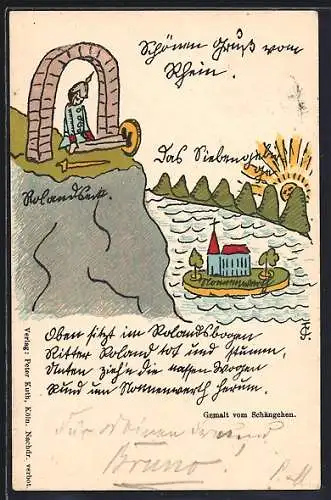 Schönen Gruß vom
Rhein.
Das Siebengebirge
Rolandseck.
Nonnenwerth
Oben sitzt im Rolandsboogen
Ritter Roland tot und stumm,
Unten zieh'n die nassen Woogen
Rund um Nonnenwerth herum.
Gemalt vom Schängchen.
Für meinen Freund
Bruno!
Verlag: Peter Kuth, Köln. Nachdr. verbot.